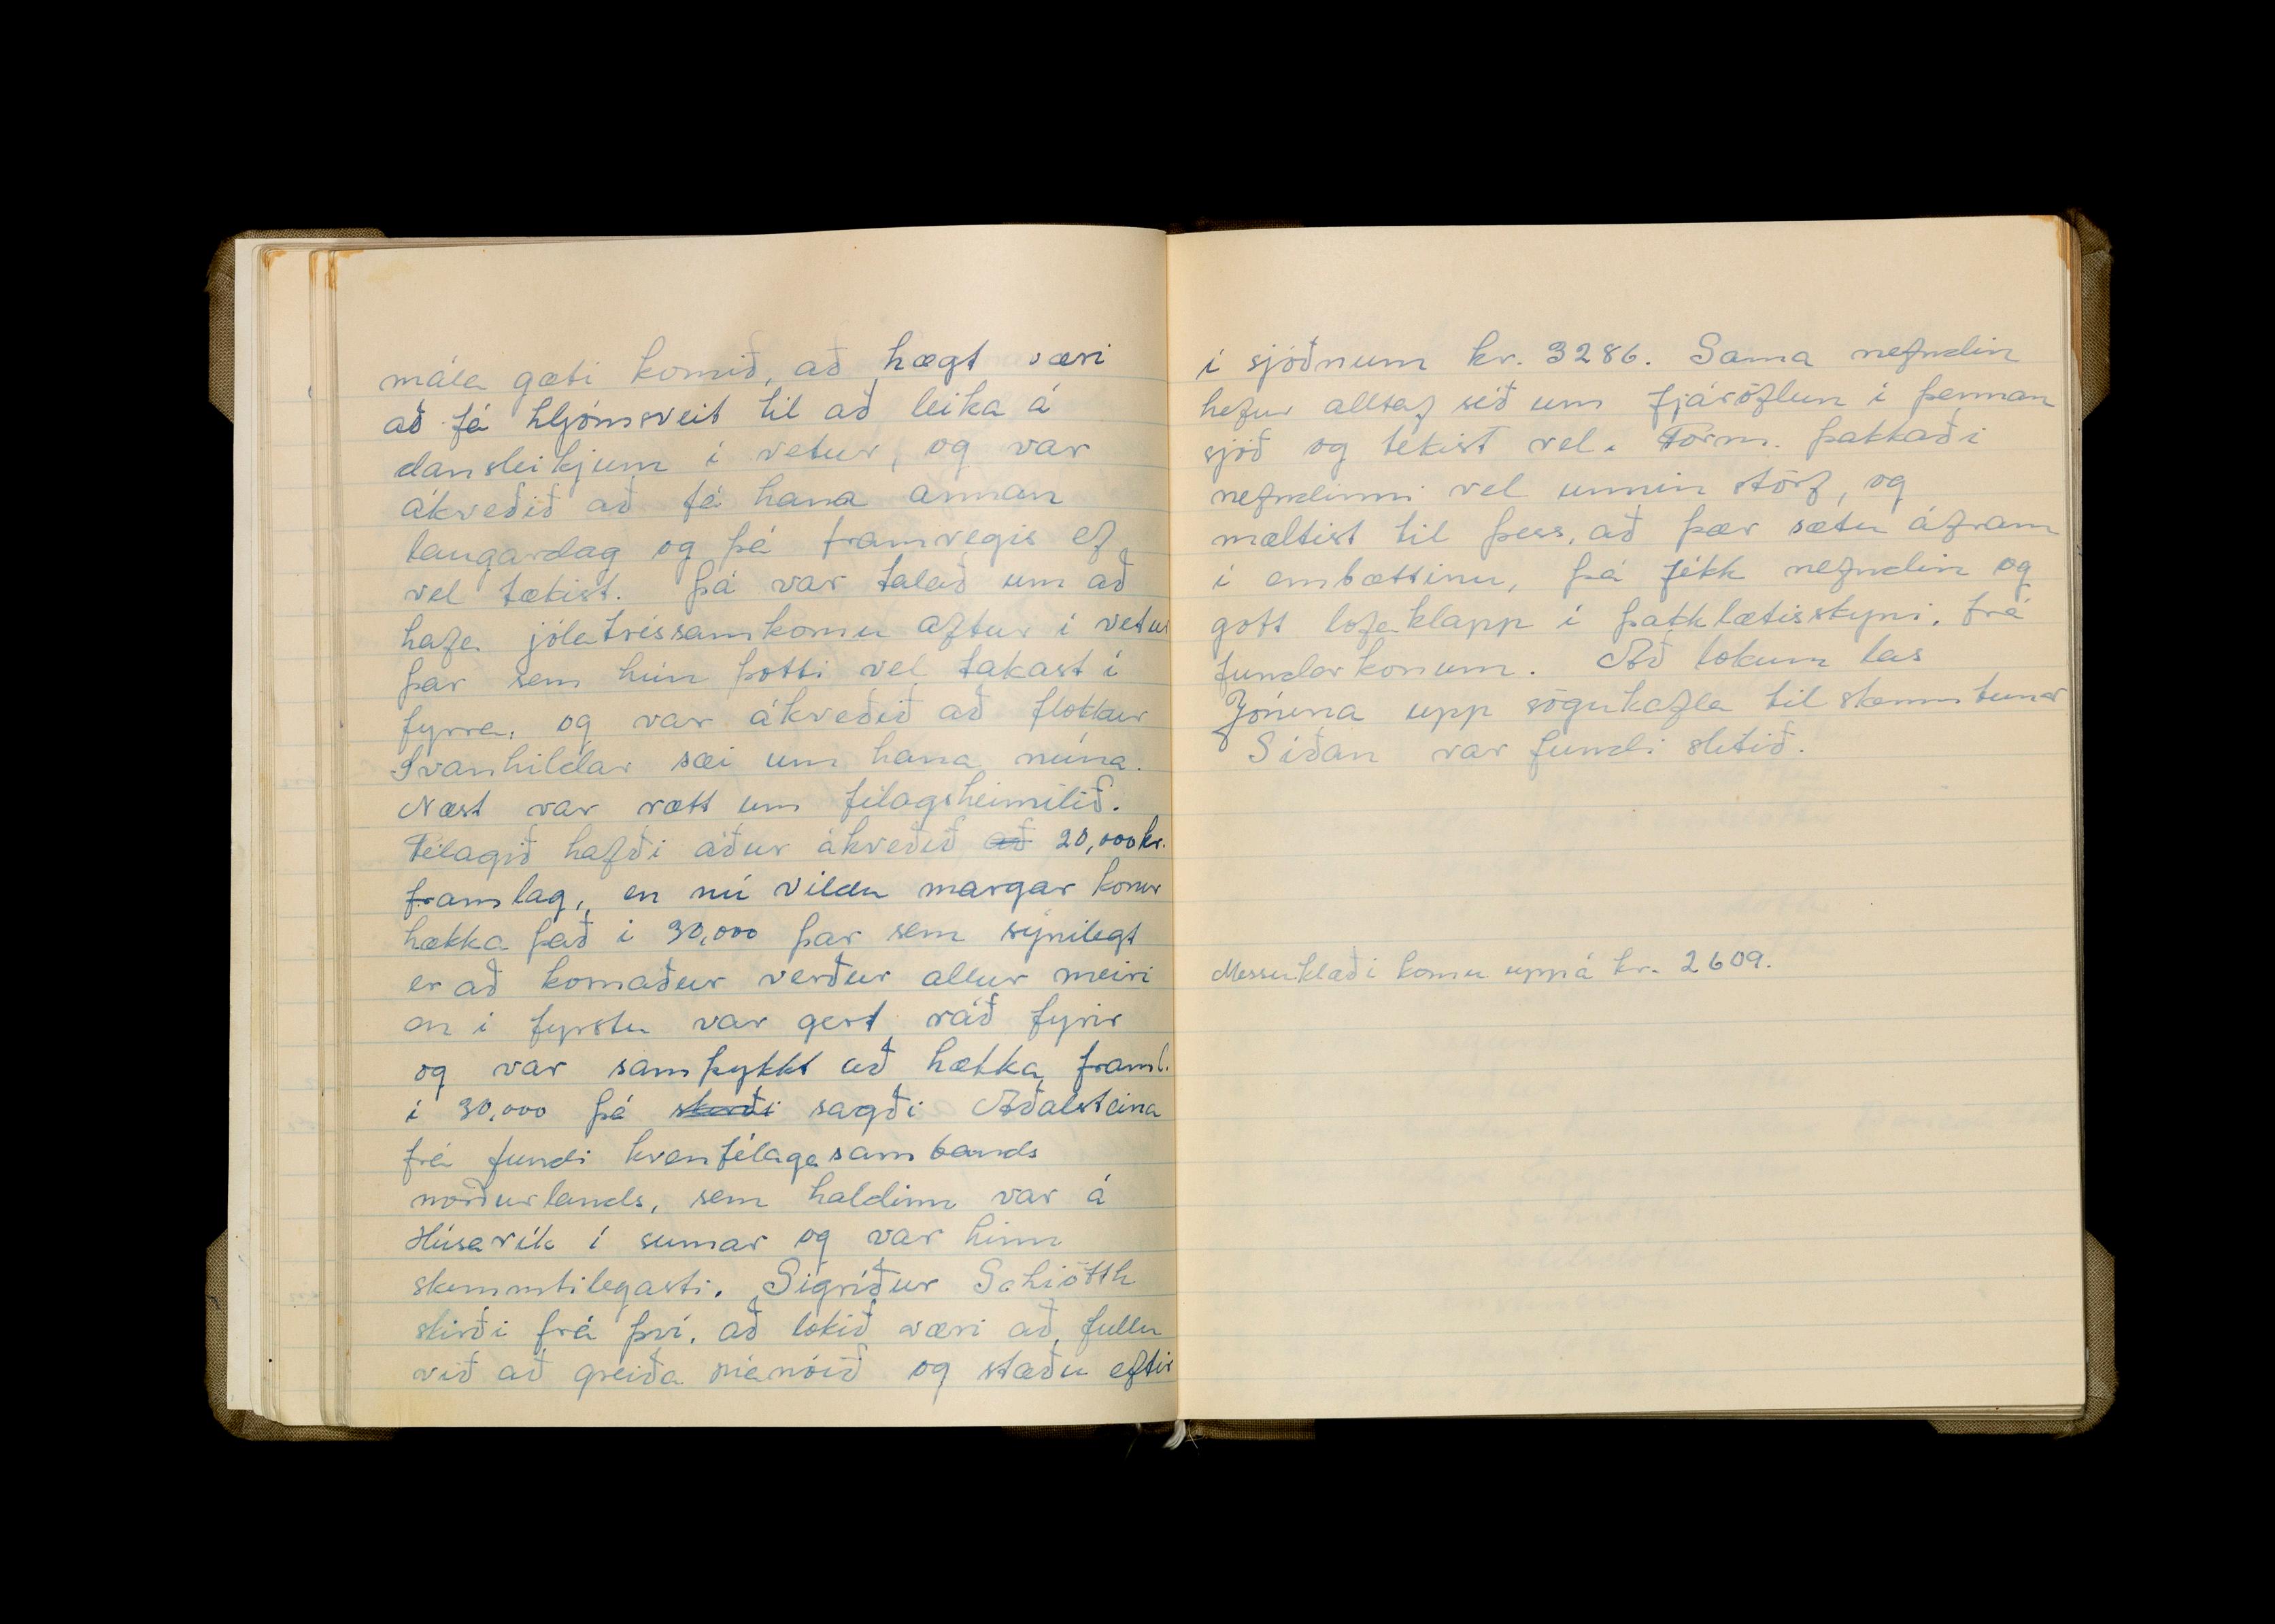 mála gæti komið, að hægt væri
að fá hljómsveit til að leika á
dansleikjum í vetur, og var
ákveðið að fá hana annan
laugardag og þá framvegis ef
vel tækist. Þá var talað um að
hafa jólatréssamkomu aftur í vetur
þar sem hún þótti vel takast í
fyrra, og var ákveðið að flokkur
Svanhildar sæi um hana núna.
Næst var rætt um félagsheimilið.
Félagið hafði áður ákveðið að 20,000 kr.
framlag, en nú vildu margar konur
hækka það í 30,000 þar sem sýnilegt
er að komaður verður allur meiri
en í fyrstu var gert ráð fyrir
og var samþykkt að hækka framl.
í 30,000 þá skerði sagði Aðalsteina
frá fundi kvenfélagasambands
norðurlands, sem haldinn var á
Húsavík í sumar og var hinn
skemmtilegasti. Sigríður Schiötth
skirði frá því, að lokið væri að fullu
við að greiða píanóið og stæðu eftir
í sjóðnum kr. 3286. Sama nefndin
hefur alltaf séð um fjáröflun í þennan
sjóð og tekist vel. Form. þakkaði
nefndinni vel unnin störf, og
mæltist til þess, að þær sætu áfram
í embættinu, þá fékk nefndin og
gott lofaklapp í þakklætisskyni, frá
fundarkonum. Að lokum las
Jónína upp sögukafla til skemmtunar
Síðan var fundi slitið.
Messuklæði komu uppá kr. 2609.